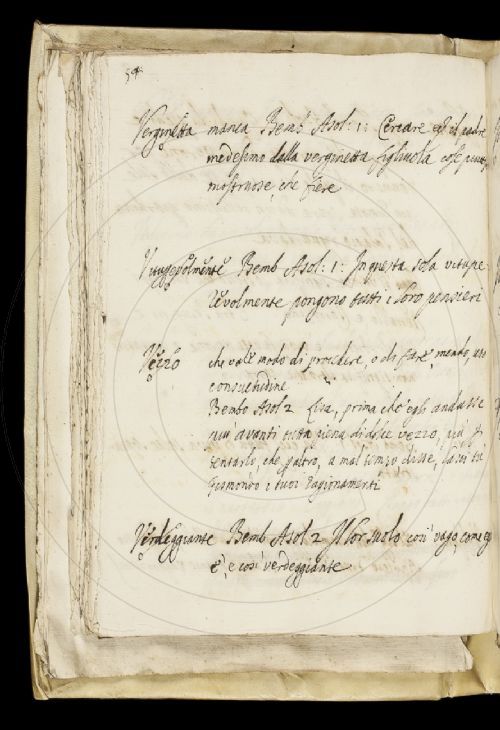 Verginetta manca Bemb Asol: 1: Cercare ed il padre
medesimo dalla verginetta figliuola cose
mostruose, che fiere
Vitupevolmente Bemb Asol: 1: In questa sola vitupe
levolmente pongono tutti i loro pensieri
Vezzo che vale modo di procedere, o di fare, mendo, uso
consuetudine
Bembo Asol 2 Lisa, prima che egli andasse
più avanti tutta piena di dolce vezzo, più p
tentarlo, che p altro, a mal tempo disse, lascia tu
Gismondo i tuoi ragionamenti
Verdeggiante Bemb Asol 2 Il lor suolo così vago, come eg
è, e così verdeggiante